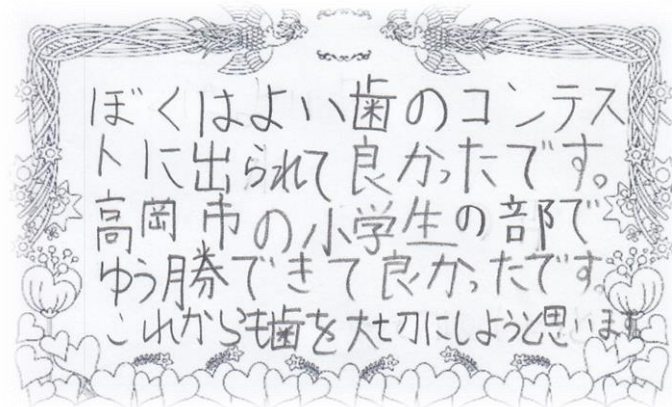 ぼくはよい歯のコンテス
トに出られて良かったです。
高岡市の小学生の部で
ゆう勝できて良かったです。
これからも歯を大切にしようと思います